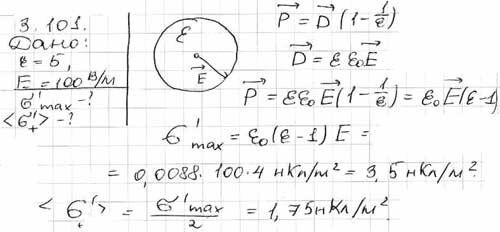 3.101.
Дано:
ε = 5,
E = 100 В/м
σ'max - ?
<σ'+> - ?
ε
E⃗
P⃗ = D⃗ (1 - 1/ε)
D⃗ = ε ε₀ E⃗
P⃗ = ε ε₀ E⃗ (1 - 1/ε) = ε₀ E⃗ (ε - 1)
σ'max = ε₀ (ε - 1) E =
= 0,0088 · 100 · 4 нКл/м² = 3,5 нКл/м²
<σ'+> = σ'max/2 = 1,75 нКл/м².